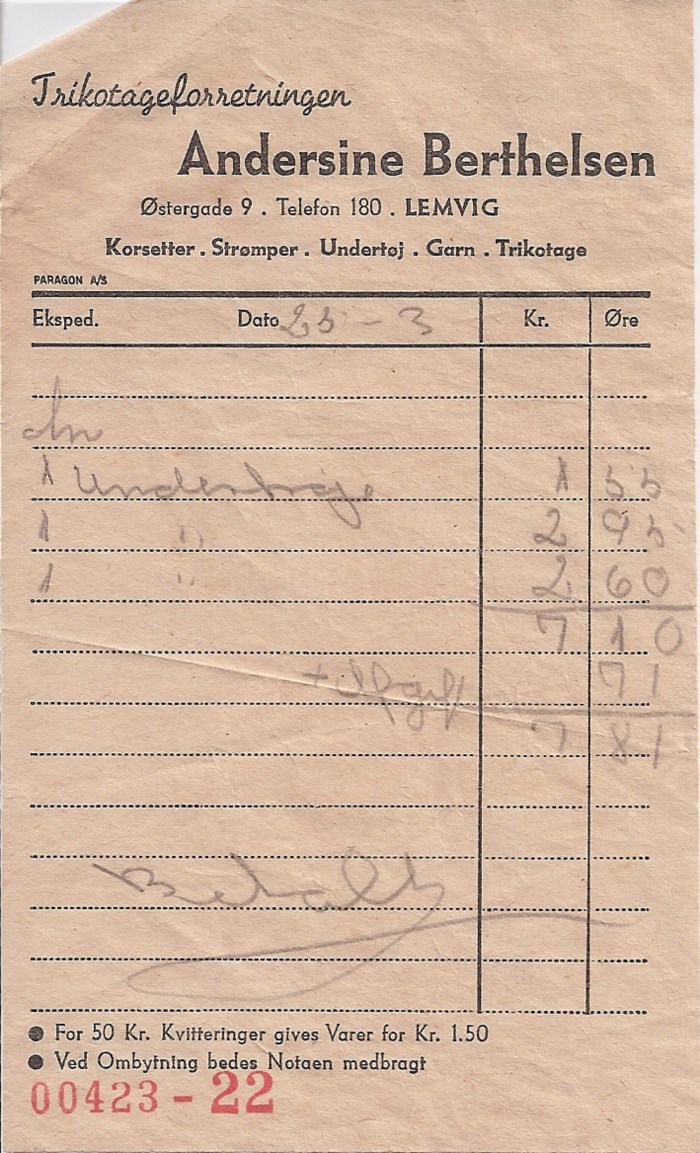 Trikotageforretningen
Andersine Berthelsen
Østergade 9 . Telefon 180 . LEMVIG
Korsetter . Strømper . Undertøj . Garn . Trikotage
PARAGON A/S
Eksped. Dato 25 - 3 Kr. Øre
1 Undertrøje 1 55
1 " 2 95
1 " 2 60
7 10
+ Afgift 71
7 81
Betalt
● For 50 Kr. Kvitteringer gives Varer for Kr. 1.50
● Ved Ombytning bedes Notaen medbragt
00423 - 22